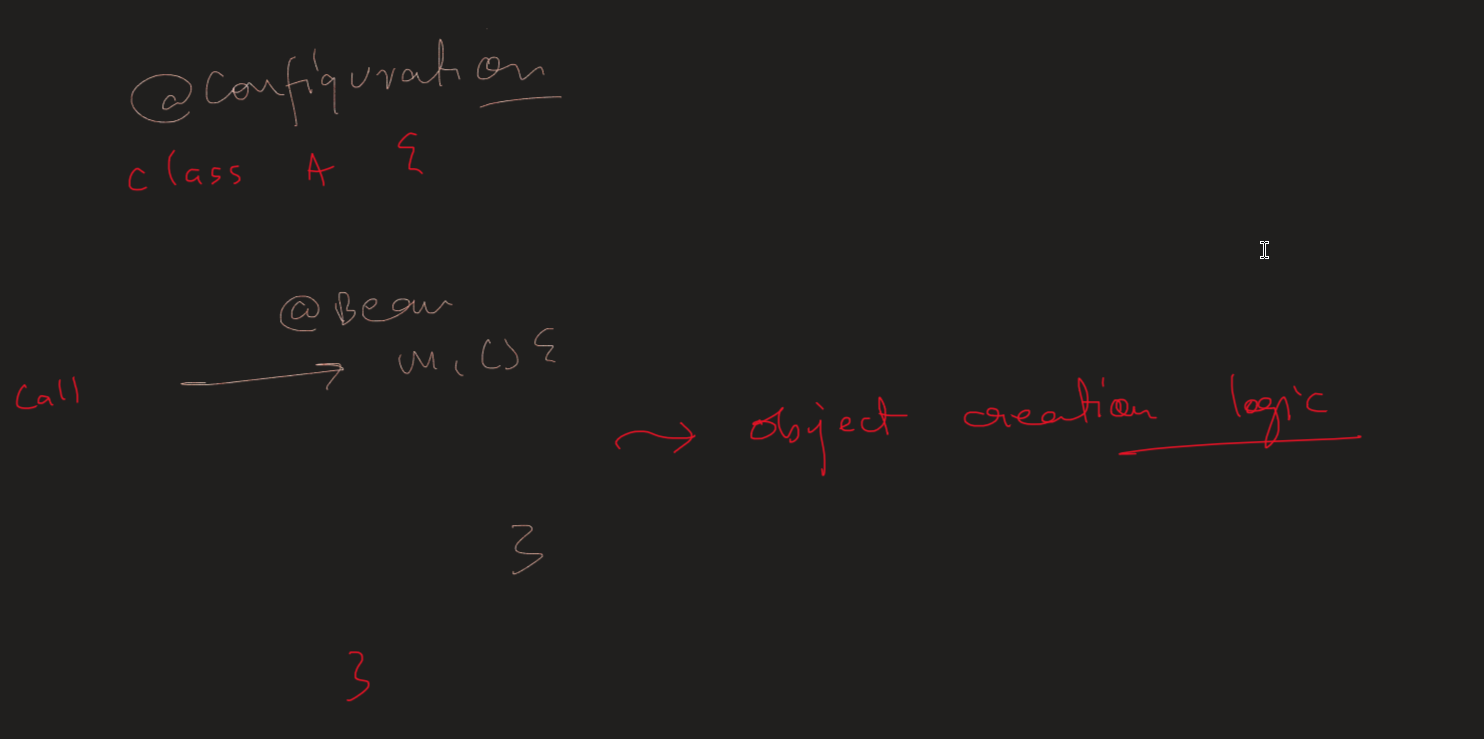 @Configuration
class A {
@Bean
m1() {
Call
object creation logic
}
}